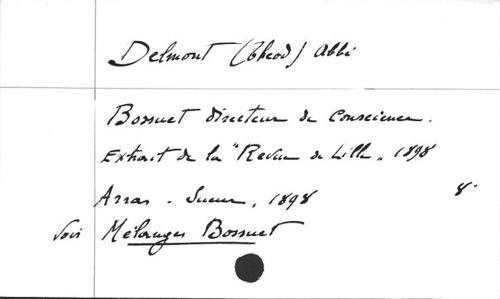 Delmont (Théod) Abbé
Bossuet directeur de Conscience.
Extrait de la "Revue de Lille", 1898
Arras. Sueur, 1898 8°
Voir Mélanges Bossuet